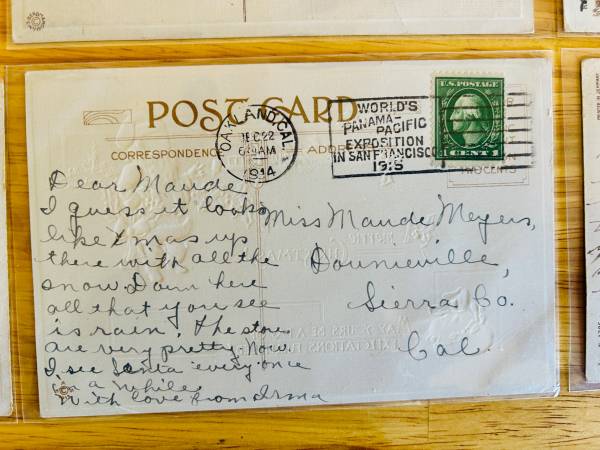 POST CARD
CORRESPONDENCE
ADDRESS
OAKLAND, CAL.
DEC 22
AM
1914
WORLD'S
PANAMA-
PACIFIC
EXPOSITION
IN SAN FRANCISCO
1915
U.S. POSTAGE
1 CENT 1
TWO CENTS
Dear Maude
I guess it looks
like Xmas up
there with all the
snow. Down here
all that you see
is rain. The stores
are very pretty now.
I see Santa every once
in a while.
With love from Irma
Miss Maude Meyers,
Downieville,
Sierra Co.
Cal.